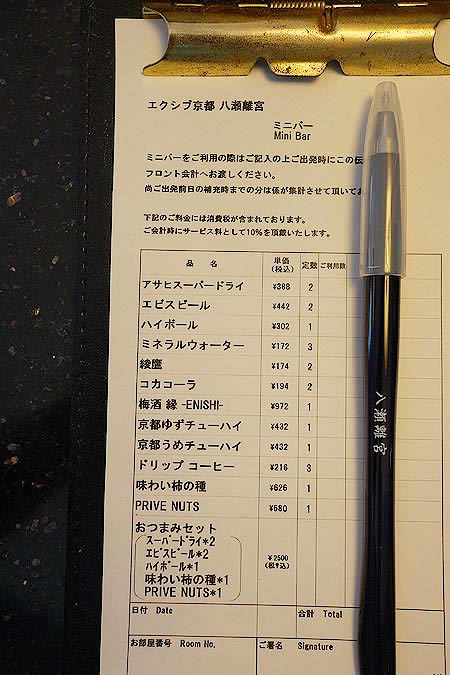 エクシブ京都 八瀬離宮
ミニバー
Mini Bar
ミニバーをご利用の際はご記入の上ご出発時にこの伝
フロント会計へお渡しください。
尚ご出発前日の補充時までの分は係が集計させて頂いてお
下記のご料金には消費税が含まれております。
ご会計時にサービス料として10%を頂戴いたします。
品 名 単価(税込) 定数 ご利用数
アサヒスーパードライ ¥388 2
エビスビール ¥442 2
ハイボール ¥302 1
ミネラルウォーター ¥172 3
綾鷹 ¥174 2
コカコーラ ¥194 2
梅酒 縁 -ENISHI- ¥972 1
京都ゆずチューハイ ¥432 1
京都うめチューハイ ¥432 1
ドリップ コーヒー ¥216 3
味わい柿の種 ¥626 1
PRIVE NUTS ¥680 1
おつまみセット
スーパードライ*2
エビスビール*2
ハイボール*1
味わい柿の種*1
PRIVE NUTS*1
¥2500
(税サ込)
日付 Date 合計 Total
お部屋番号 Room No. ご署名 Signature
八瀬離宮